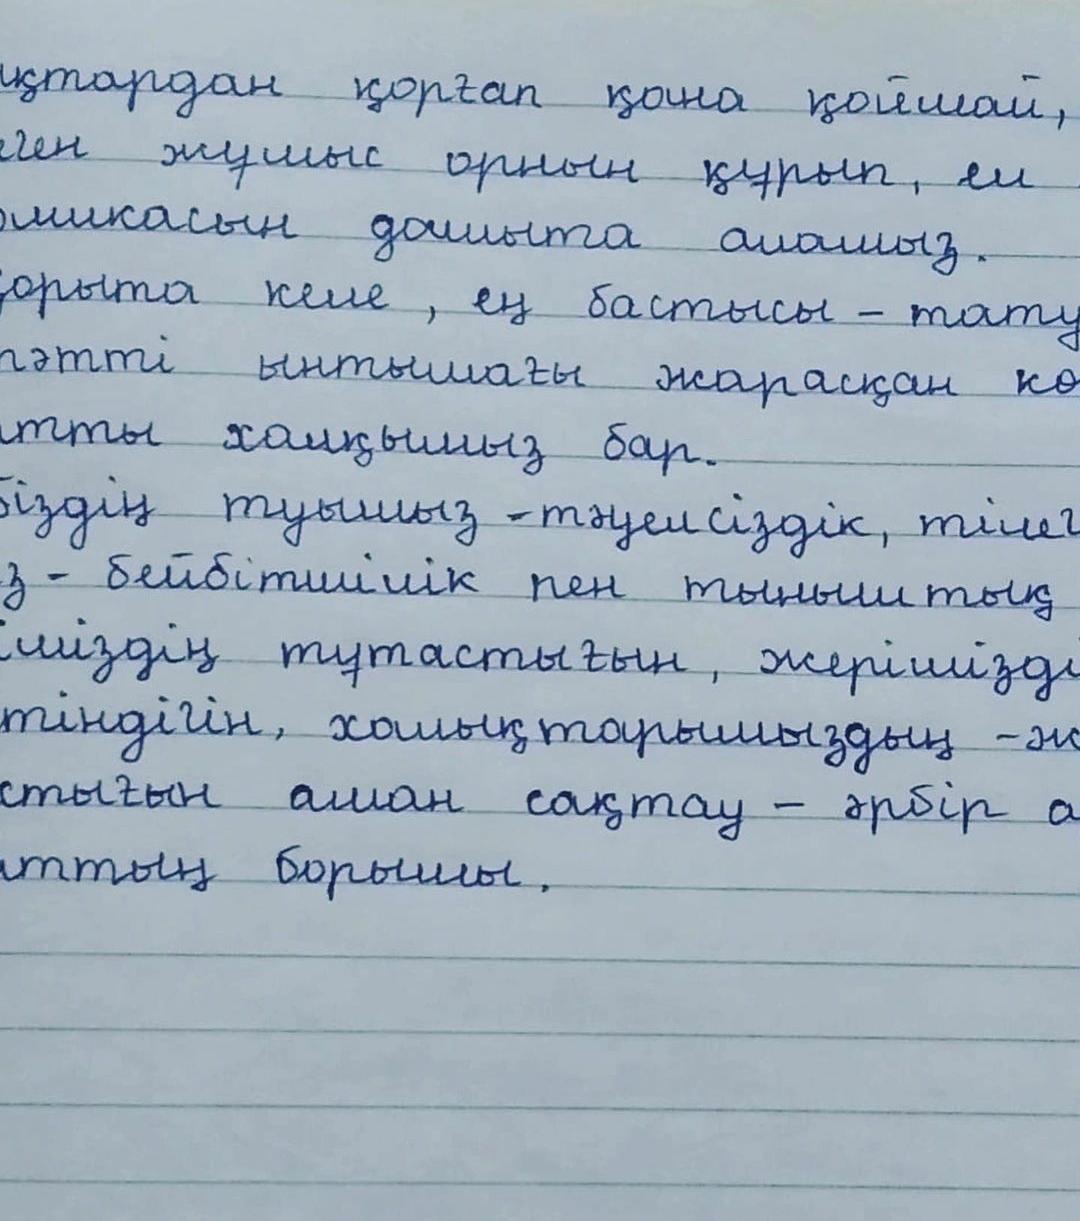 ықтардан қорғап қана қоймай,
ген жұмыс орнын құрып, ел
омикасын дамыта аламыз.
қорыта келе, ең бастысы – тату
пәтті ынтымағы жарасқан кө
атты халқымыз бар.
біздің туымыз - тәуелсіздік, тілег
з - бейбітшілік пен тыныштық
іміздің тұтастығын, жеріміздің
тіндігін, халықтарымыздың - ж
стығын аман сақтау – әрбір а
аттың борышы.